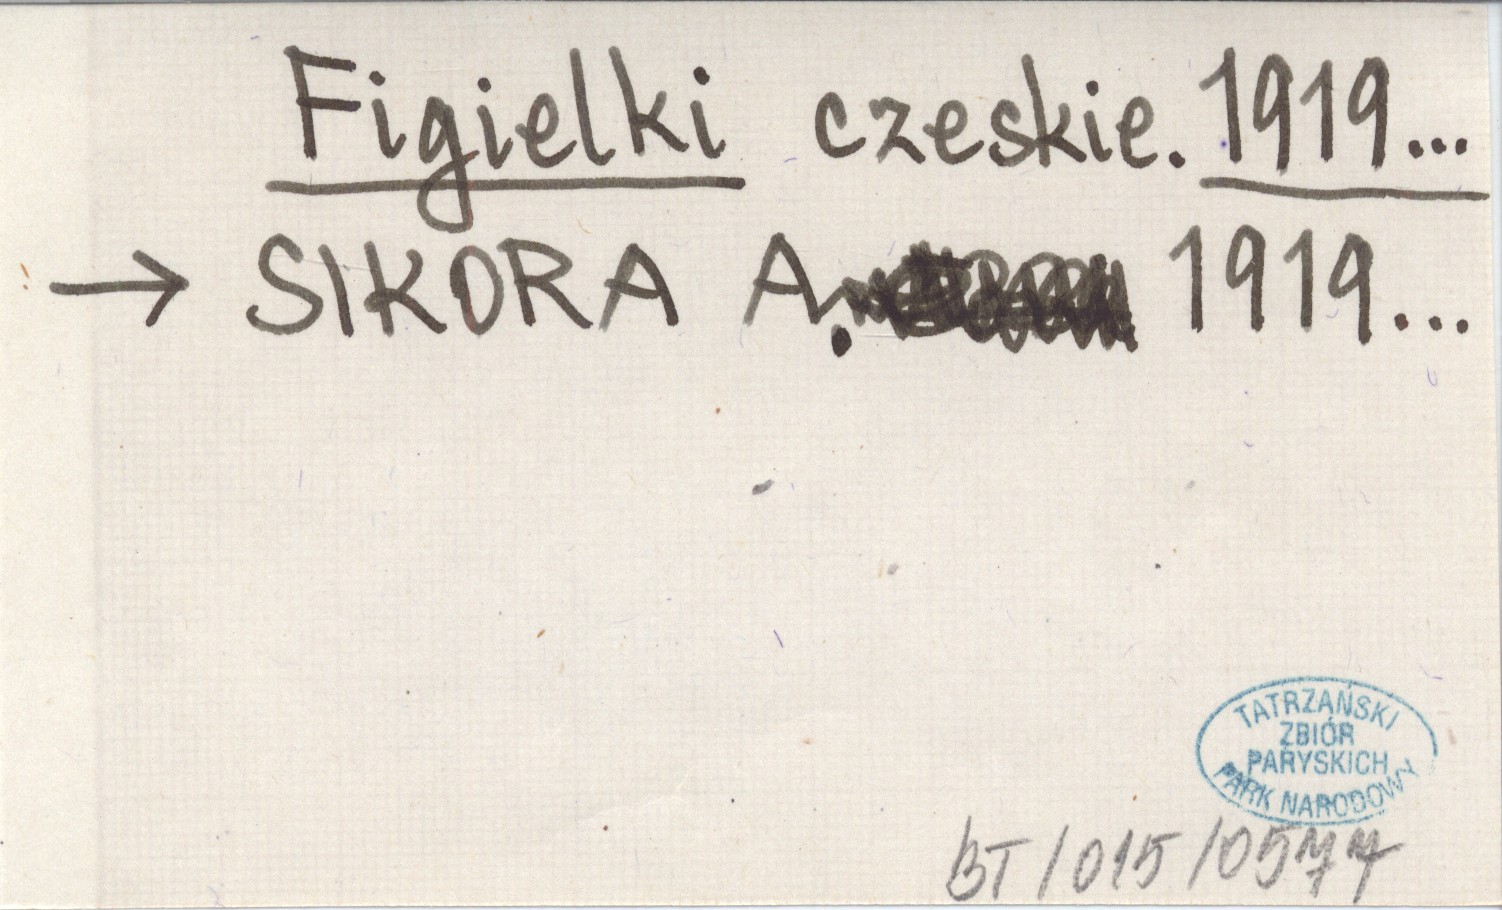 Figielki czeskie. 1919...
→ SIKORA A. 1919...
TATRZAŃSKI
ZBIÓR
PARYSKICH
PARK NARODOWY
BT/015/0577